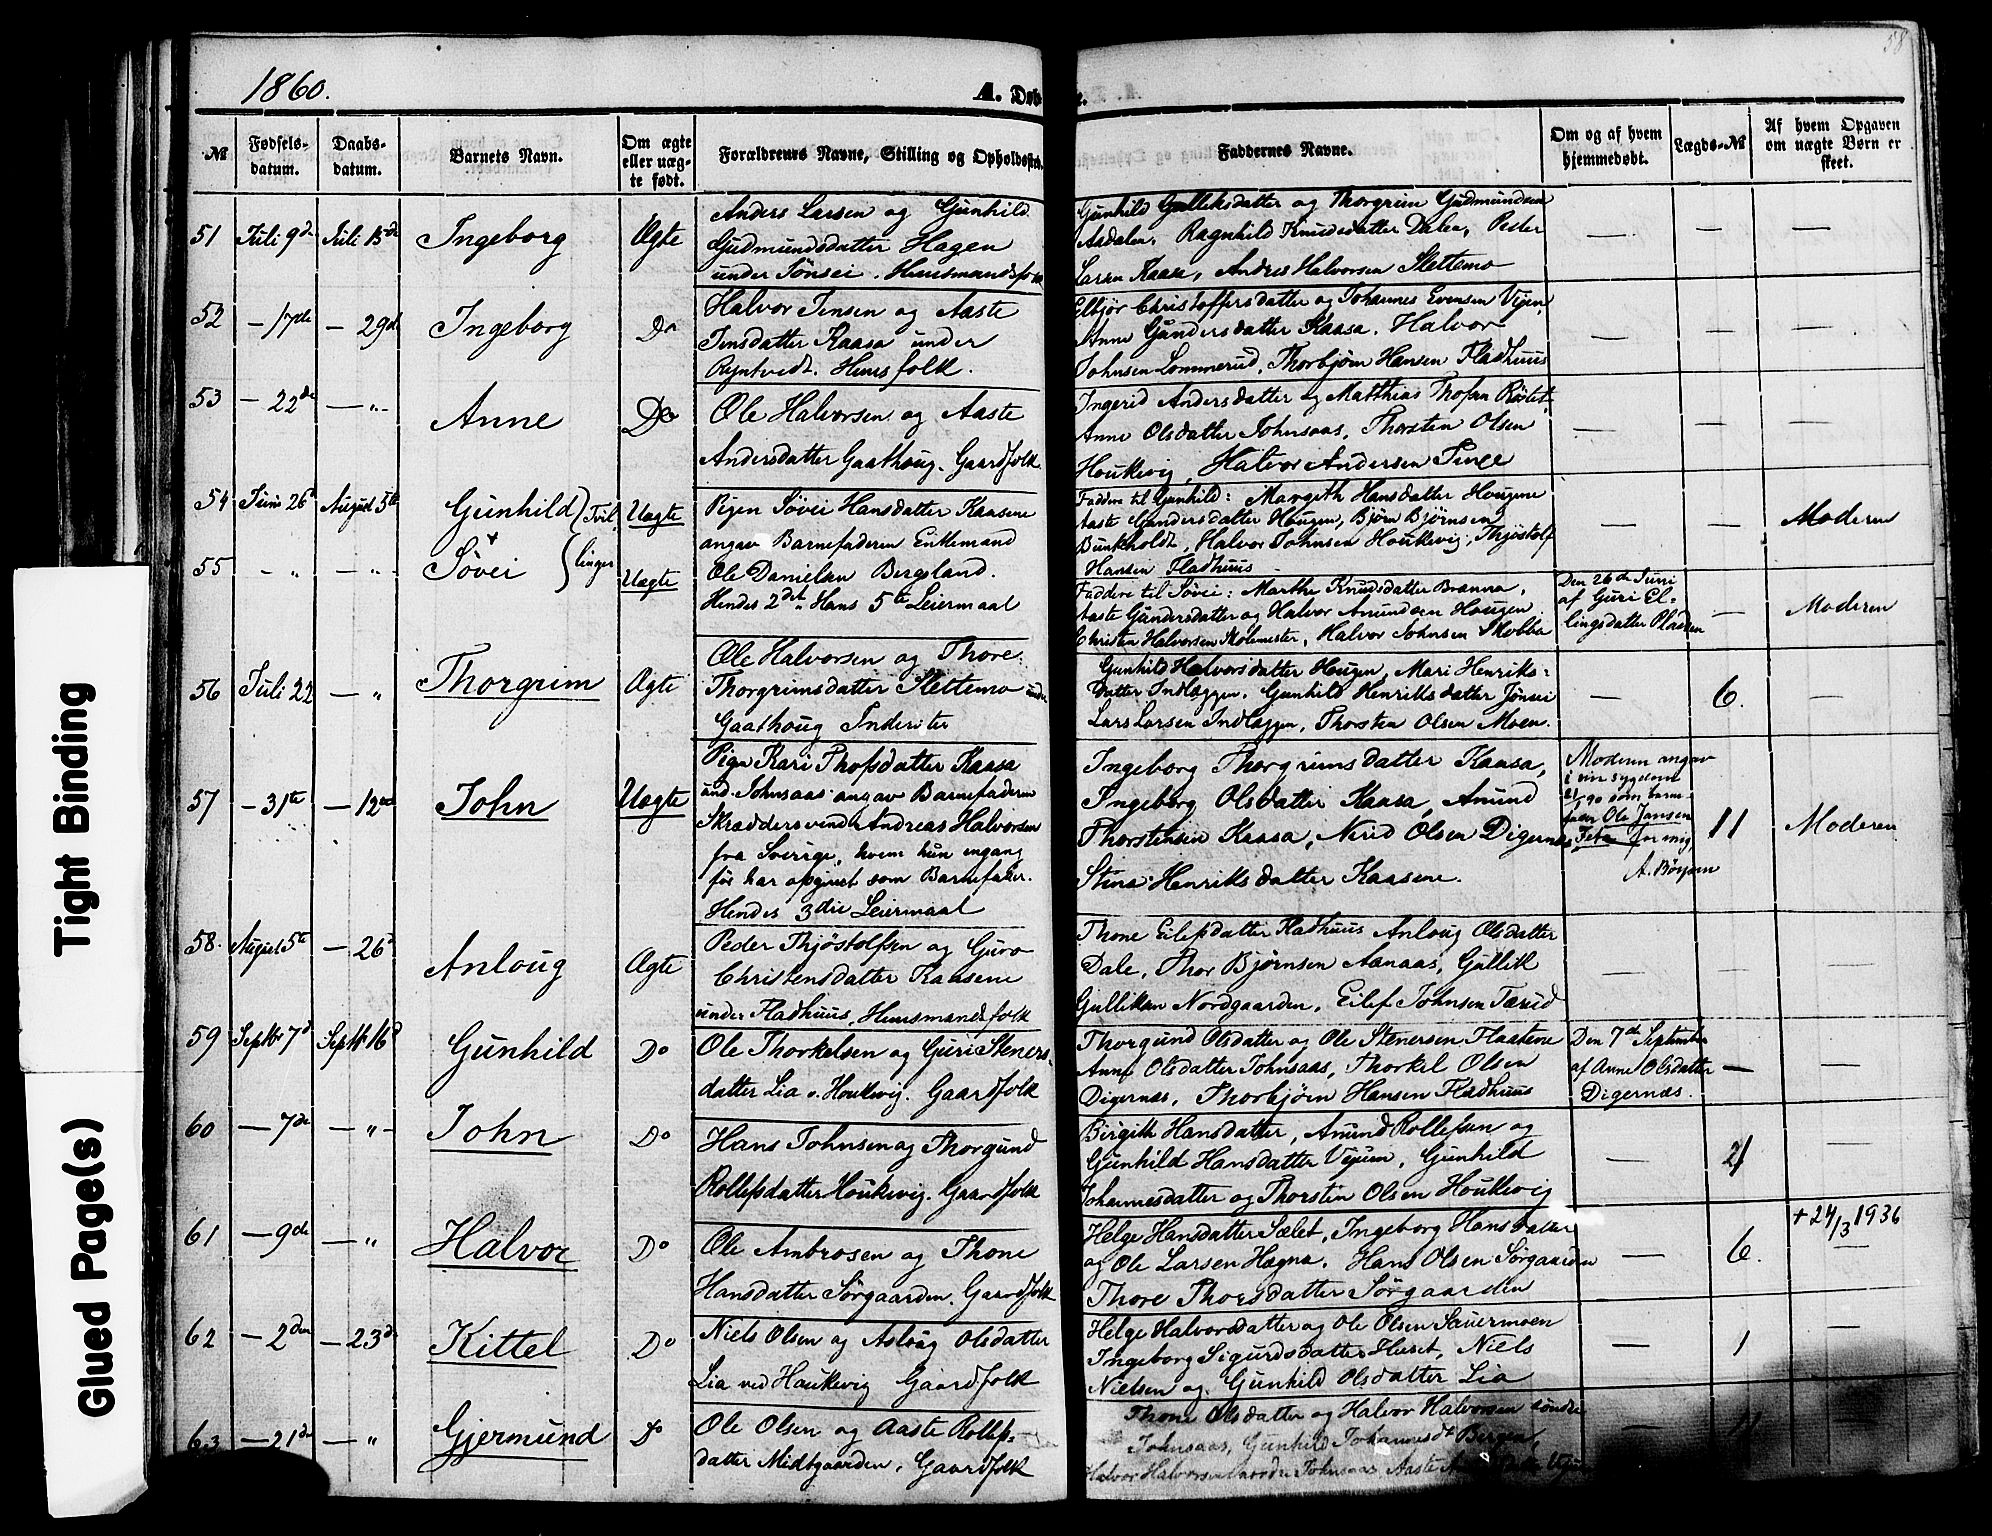 1860.
A. Døb
e.
58
№
Fødsels-
datum.
Daabs-
datum.
Barnets Navn.
Om ægte
eller uæg-
te født.
Forældrenes Navne, Stilling og Opholdsste
Faddernes Navne.
Om og af hvem
hjemmedøbt.
Lægds-№
Af hvem Opgaven
om uægte Børn er
skeet.
51 Juli 9de Juli 15de Ingeborg Ægte
Anders Larsen og Gunhild
Gudmundsdatter Hagen
under Jønsei. Huusmandsfolk
Gunhild Gulliksdatter og Thorgrim Gudmundsen
Aasdalen, Ragnhild Knudsdatter Dalen, Peder
Larsen Kaasa, Andres Halvorsen Slettemo
52 — 17de — 29de Ingeborg Do
Halvor Jensen og Aaste
Jensdatter Kaasa under
Ryntvedt. Huusfolk.
Elbjör Christoffersdatter og Johannes Evensen Vejen,
Anne Gundersdatter Kaasa. Halvor
Johnsen Lommerud, Thorbjørn Hansen Fladhuus
53 — 22de — " Anne Do
Ole Halvorsen og Aaste
Andersdatter Gaathoug. Gaardfolk.
Ingerid Andersdatter og Matthias Thofsen
Anne Olsdatter Johnsaas, Thorsten Olsen
Houkevig, Halvor Andersen
54 Juni 26de August 5te Gunhild Tvil Uægte
Pigen Søvei Hansdatter Kaasene
angav Barnefaderen Enkemand
Ole Danielsen Bergsland.
Hendes 2det Hans 5te Leiermaal
Faddere til Gunhild: Margith Hansdatter Hougene
Aaste Gundersdatter Hougen, Bjørn Bjørnsen
Bunkholdt, Halvor Johnsen Houkevig, Thjøstolf
Hansen Fladhuus
Moderen
55 — " — " Søvei linger Uægte
Faddere til Søvei: Marthe Knudsdatter Brenna,
Aaste Gundersdatter og Halvor Amundsen Hougen
Christen Halvorsen Skolemester, Halvor Johnsen Skobba
Den 26de Juni
af Guri El-
lingsdatter Pladsen
Moderen
56 Juli 22 — " Thorgrim Ægte
Ole Halvorsen og Thore
Thorgrimsdatter Slettemo under
Gaathoug Inderster
Gunhild Halvorsdatter Hougen, Mari Henriks-
datter Indlæggen. Gunhild Henriksdatter Jønsei
Lars Larsen Indlæggen, Thorsten Olsen Moen.
6.
57 — 31te — 12te John Uægte
Pige Kari Thofsdatter Kaasa
und. Johnsaas angav Barnefaderen
Skræddersvend Andreas Halvorsen
fra Sverige, hvem hun engang
før har opgivet som Barnefader.
Hendes 3die Leiermaal
Ingeborg Thorgrimsdatter Kaasa,
Ingeborg Olsdatter Kaasa, Amund
Thorstensen Kaasa, Nirid Olsen Digernæs,
Stina Henriksdatter Kaasene.
Moderen angav
i sin sygdom
som barne-
fader Ole Jansen
for mig,
A. Børresen
11
Moderen
58. August 5te — 26de Anloug Ægte
Peder Thjøstolfsen og Guro
Christensdatter Kaasene
under Fladhuus, Huusmandsfolk
Thone Eilefsdatter Fladhuus Anloug Olsdatter
Dale, Thor Bjørnsen Aanaas, Gullik
Gulliksen Nordgaarden, Eilef Johnsen Tærud
59 Septbr 7de Septbr 16de Gunhild Do
Ole Thorkelsen og Guri Steners-
datter Lia v. Houkevig. Gaardfolk
Thorgund Olsdatter og Ole Stenersen Flaatene
Anne Olsdatter Johnsaas, Thorkel Olsen
Digernæs, Thorbjørn Hansen Fladhuus
Den 7de September
af Anne Olsdatter
Digernæs.
60 — 7de — " John Do
Hans Johnsen og Thorgund
Rollefsdatter Houkevig. Gaardfolk
Birgith Hansdatter, Amund Rollefsen og
Gunhild Hansdatter Vejen, Gunhild
Johannesdatter og Thorstin Olsen Houkevig
61 — 9de — " Halvor Do
Ole Ambrosen og Thone
Hansdatter Sørgaarden. Gaardfolk
Helge Hansdatter Sælet, Ingeborg Hansdatter
og Ole Larsen Hægna. Hans Olsen Sørgaarden
Thore Thorsdatter Sørgaarden
6.
+ 24/3 1936
62 — 2den — 23de Kittel Do
Niels Olsen og Aslaug Olsdatter
Lia ved Houkevig Gaardfolk
Helge Halvorsdatter og Ole Olsen Sauermoen
Ingeborg Sigurdsdatter Huset, Niels
Nielsen og Gunhild Olsdatter Lia
1
63 — 21de — " Gjermund Do
Ole Olsen og Aaste Rollefs-
datter Midtgaarden, Gaardfolk
Thone Olsdatter og Halvor Halvorsen søndre
Johnsaas, Gunhild Johannesdt Bergen,
Halvor Halvorsen nordre Johnsaas Aaste
11
Tight Binding
Glued Page(s)